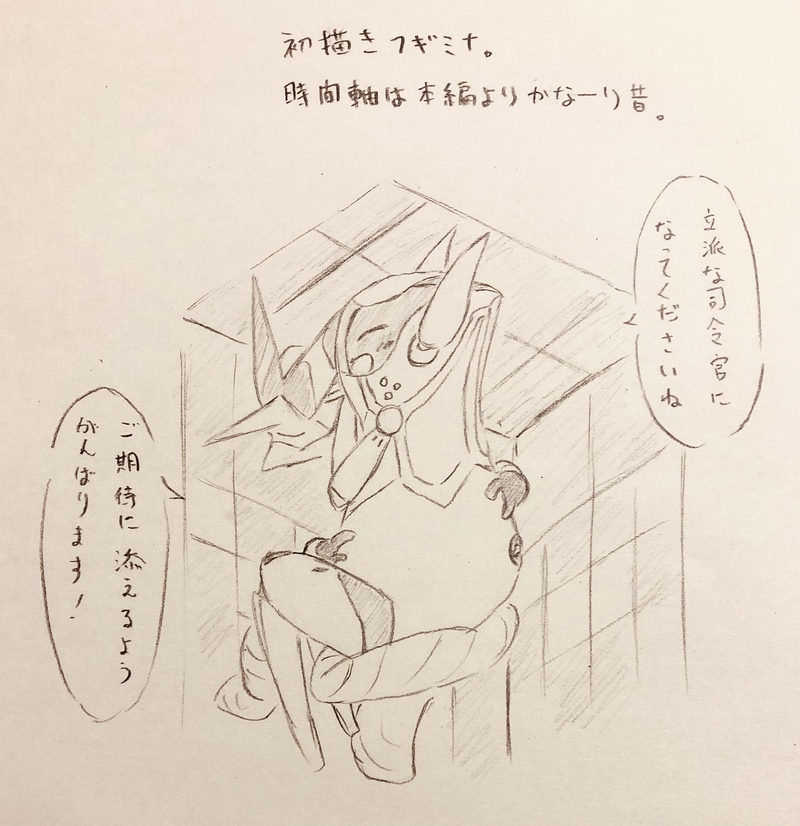 初描きフギミナ。
時間軸は本編よりかなーり昔。
立派な司令官に
なってくださいね
ご期待に添えるよう
がんばります!